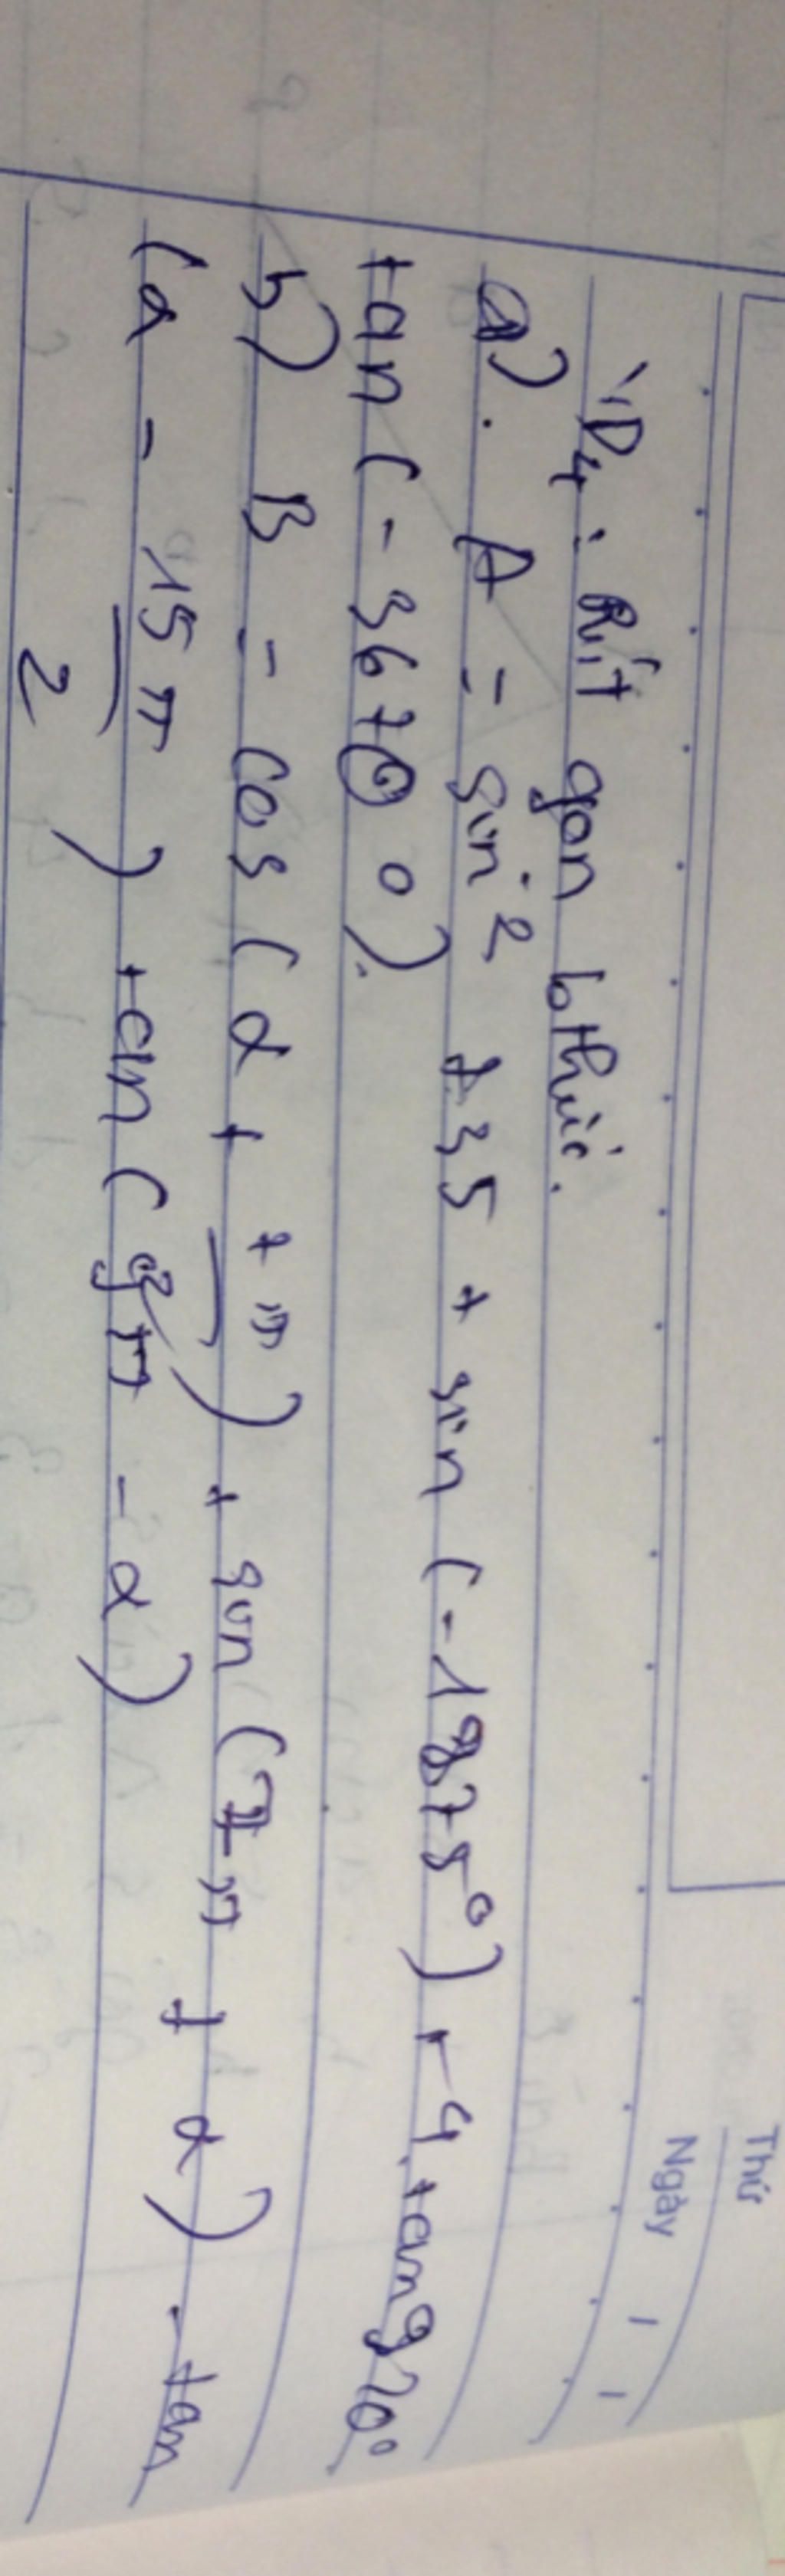 Thứ
Ngày
VD4: Rút gọn bthức.
a). A = sin² 735 + sin (-1875°) + 4. tan 920°
tan (-3670°).
b) B = cos (α + 7π) + sin (7π + α) - tan
(α - 15π/2) tan (9π - α)